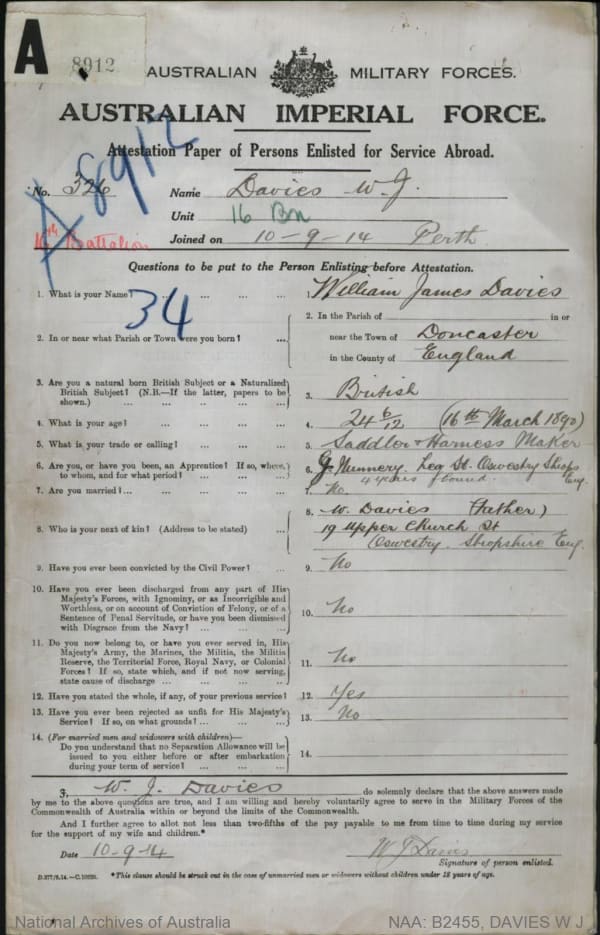 A
8912
AUSTRALIAN MILITARY FORCES.
AUSTRALIAN IMPERIAL FORCE.
Attestation Paper of Persons Enlisted for Service Abroad.
8912
No. 326 Name Davies W. J.
Unit 16 Bn
16th Battalion
Joined on 10-9-14 Perth
Questions to be put to the Person Enlisting before Attestation.
1. What is your Name? ... ... ... ... 1. William James Davies
34
2. In or near what Parish or Town were you born? ... 2. In the Parish of in or
near the Town of Doncaster
in the County of England
3. Are you a natural born British Subject or a Naturalized
British Subject? (N.B.—If the latter, papers to be
shown.) ... ... ... ... ... 3. British
4. What is your age? ... ... ... ... 4. 24 6/12 (16th March 1890)
5. What is your trade or calling? ... ... ... 5. Saddler & Harness Maker
6. Are you, or have you been, an Apprentice? If so, where,
to whom, and for what period? ... ... ... 6. G. Nunnery. Leg St. Oswestry Shrops Eng.
4 years bound.
7. Are you married? ... ... ... ... 7. No.
8. Who is your next of kin? (Address to be stated) ... 8. W. Davies (father)
19 Upper Church St
Oswestry. Shropshire Eng.
9. Have you ever been convicted by the Civil Power? ... 9. No
10. Have you ever been discharged from any part of His
Majesty's Forces, with Ignominy, or as Incorrigible and
Worthless, or on account of Conviction of Felony, or of a
Sentence of Penal Servitude, or have you been dismissed
with Disgrace from the Navy? ... ... ... 10. No
11. Do you now belong to, or have you ever served in, His
Majesty's Army, the Marines, the Militia, the Militia
Reserve, the Territorial Force, Royal Navy, or Colonial
Forces? If so, state which, and if not now serving,
state cause of discharge ... ... ... ... 11. No
12. Have you stated the whole, if any, of your previous service? 12. Yes
13. Have you ever been rejected as unfit for His Majesty's
Service? If so, on what grounds? ... ... ... 13. No
14. (For married men and widowers with children)—
Do you understand that no Separation Allowance will be
issued to you either before or after embarkation
during your term of service? ... ... ... 14.
I, W. J. Davies do solemnly declare that the above answers made
by me to the above questions are true, and I am willing and hereby voluntarily agree to serve in the Military Forces of the
Commonwealth of Australia within or beyond the limits of the Commonwealth.
And I further agree to allot not less than two-fifths of the pay payable to me from time to time during my service
for the support of my wife and children.*
Date 10-9-14 W J Davies
Signature of person enlisted.
*This clause should be struck out in the case of unmarried men or widowers without children under 18 years of age.
National Archives of Australia NAA: B2455, DAVIES W J